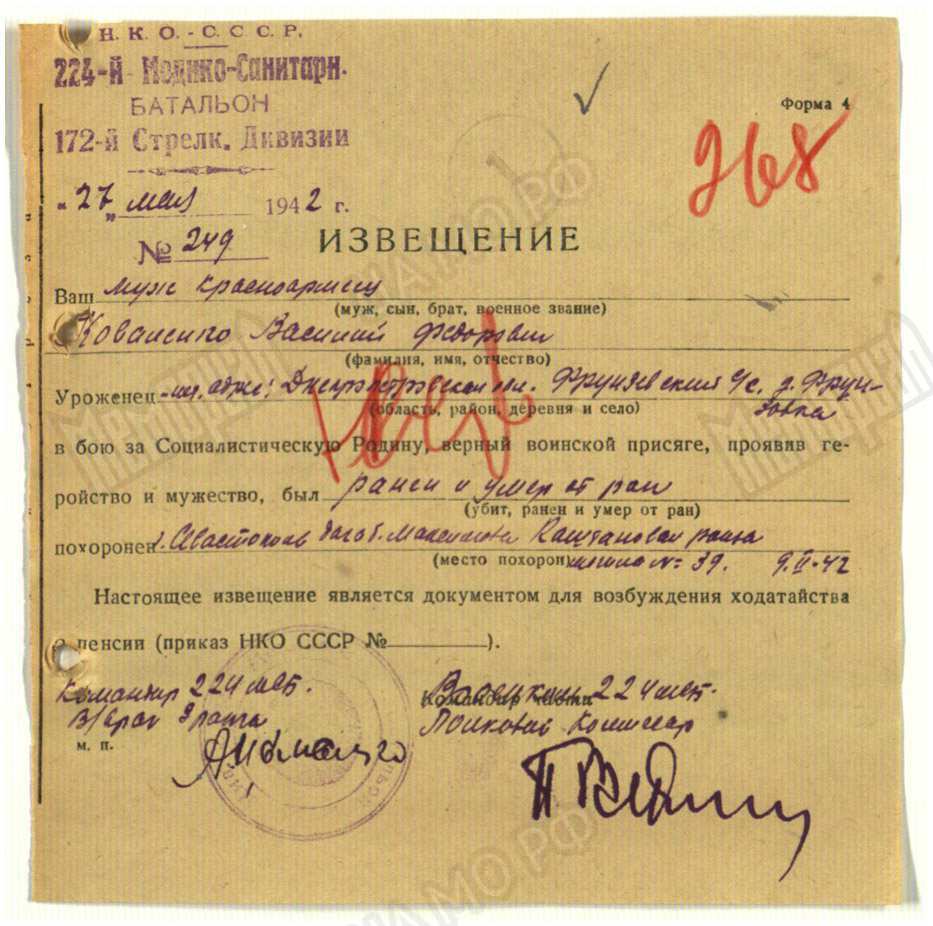 Н. К. О. - С. С. С. Р.
224-й Медико-Санитарн.
БАТАЛЬОН
172-й Стрелк. Дивизии
Форма 4
268
"27" мая 1942 г.
№ 249
ИЗВЕЩЕНИЕ
Ваш муж красноармеец
(муж, сын, брат, военное звание)
Коваленко Василий Федорович
(фамилия, имя, отчество)
Уроженец Днепропетровская обл. Фрунзевский с/с. д. Фрун-
зовка
(область, район, деревня и село)
в бою за Социалистическую Родину, верный воинской присяге, проявив ге-
ройство и мужество, был ранен и умер от ран
(убит, ранен и умер от ран)
похоронен г. Севастополь Максимова
(место похорон) могила № 39. 9.II-42
Настоящее извещение является документом для возбуждения ходатайства
о пенсии (приказ НКО СССР № ).
Командир 224 мсб. Военком 224 мсб.
В/врач 3 ранга Командир части
Полковой Комиссар
м. п.
Мемориал
ЦА МО РФ
Мемориал
ЦА МО РФ